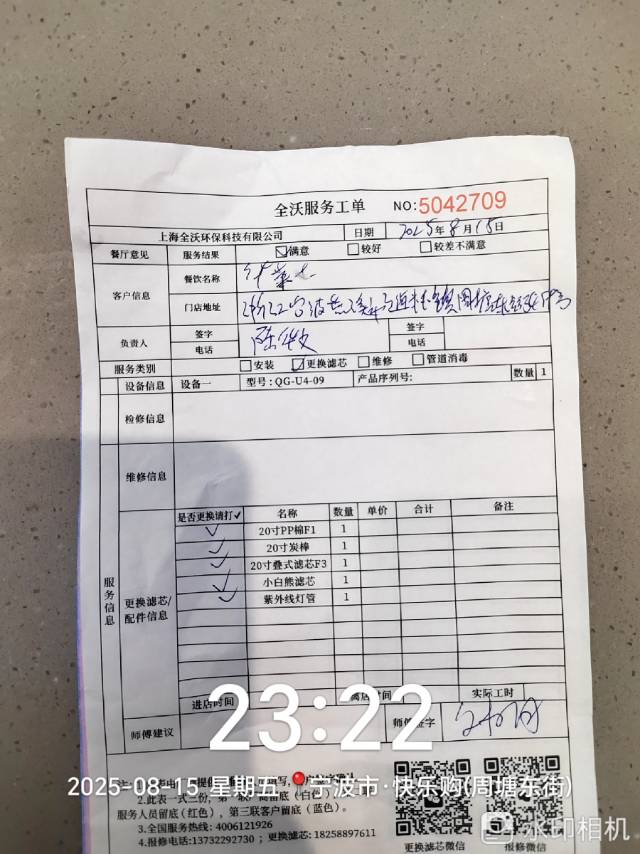 全沃服务工单 NO:5042709
上海全沃环保科技有限公司 日期 2025年8月15日
餐厅意见 服务结果 ☑满意 □较好 □较差不满意
客户信息 餐饮名称
门店地址
负责人 签字 签字
电话 电话
服务类别 □安装 ☑更换滤芯 □维修 □管道消毒
设备信息 设备一 型号:QG-U4-09 产品序列号: 数量 1
检修信息
维修信息
服务信息
更换滤芯/配件信息
是否更换请打✓ 名称 数量 单价 合计 备注
✓ 20寸PP棉F1 1
✓ 20寸炭棒 1
✓ 20寸叠式滤芯F3 1
✓ 小白熊滤芯 1
✓ 紫外线灯管 1
进店时间 离店时间 实际工时
师傅建议 师傅签字
23:22
2025-08-15 星期五 宁波市·快乐购(周塘东街)
2.此表一式三份,第一联 留底(白色)
服务人员留底(红色),第三联客户留底(蓝色)。
3.全国服务热线:4006121926
4.报修电话:13732292730;更换滤芯:18258897611
更换滤芯微信 报修微信
水印相机